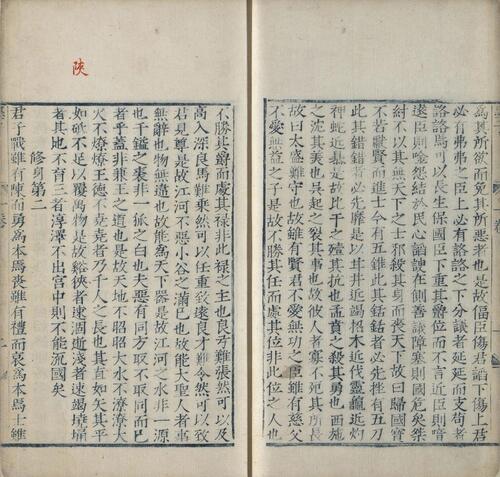 為其所欲而免其所惡者也是故偪臣傷君諂下傷上君
必有弗弗之臣上必有詻詻之下分議者延延而支苟者
詻詻焉可以長生保國臣下重其爵位而不言近臣則喑
遠臣則唫怨結於民心諂諛在側善議障塞則國危矣桀
紂不以其無天下之士邪殺其身而喪天下故曰歸國寶
不若獻賢而進士今有五錐此其銛銛者必先挫有五刀
此其錯錯者必先靡是以甘井近竭招木近伐靈龜近灼
神蛇近暴是故比干之殪其抗也孟賁之殺其勇也西施
之沈其美也吳起之裂其事也故彼人者寡不死其所長
故曰太盛難守也故雖有賢君不愛無功之臣雖有慈父
不愛無益之子是故不勝其任而處其位非此位之人也
陝
不勝其爵而處其祿非此祿之主也良弓難張然可以及
高入深良馬難乘然可以任重致遠良才難令然可以致
君見尊是故江河不惡小谷之滿已也故能大聖人者事
無辭也物無違也故能為天下器是故江河之水非一源
也千鎰之裘非一狐之白也夫惡有同方取不取同而已
者乎蓋非兼王之道也是故天地不昭昭大水不潦潦大
火不燎燎王德不堯堯者乃千人之長也其直如矢其平
如砥不足以覆萬物是故谿狹者速涸逝淺者速竭墝埆
者其地不育三者淳澤不出宮中則不能流國矣
修身第二
君子戰雖有陳而勇為本焉喪雖有禮而哀為本焉士雖